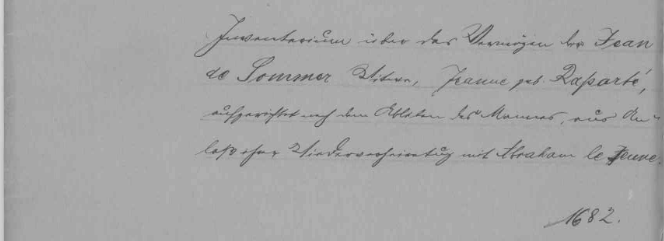 Inventarium über das Vermögen der Jean
de Sommer Witwe, Jeanne geb. Raparbé,
aufgerichtet nach dem Ableben des Mannes, aus An-
laß ihrer Wiederverheiratung mit Abraham le Jeune
1682.